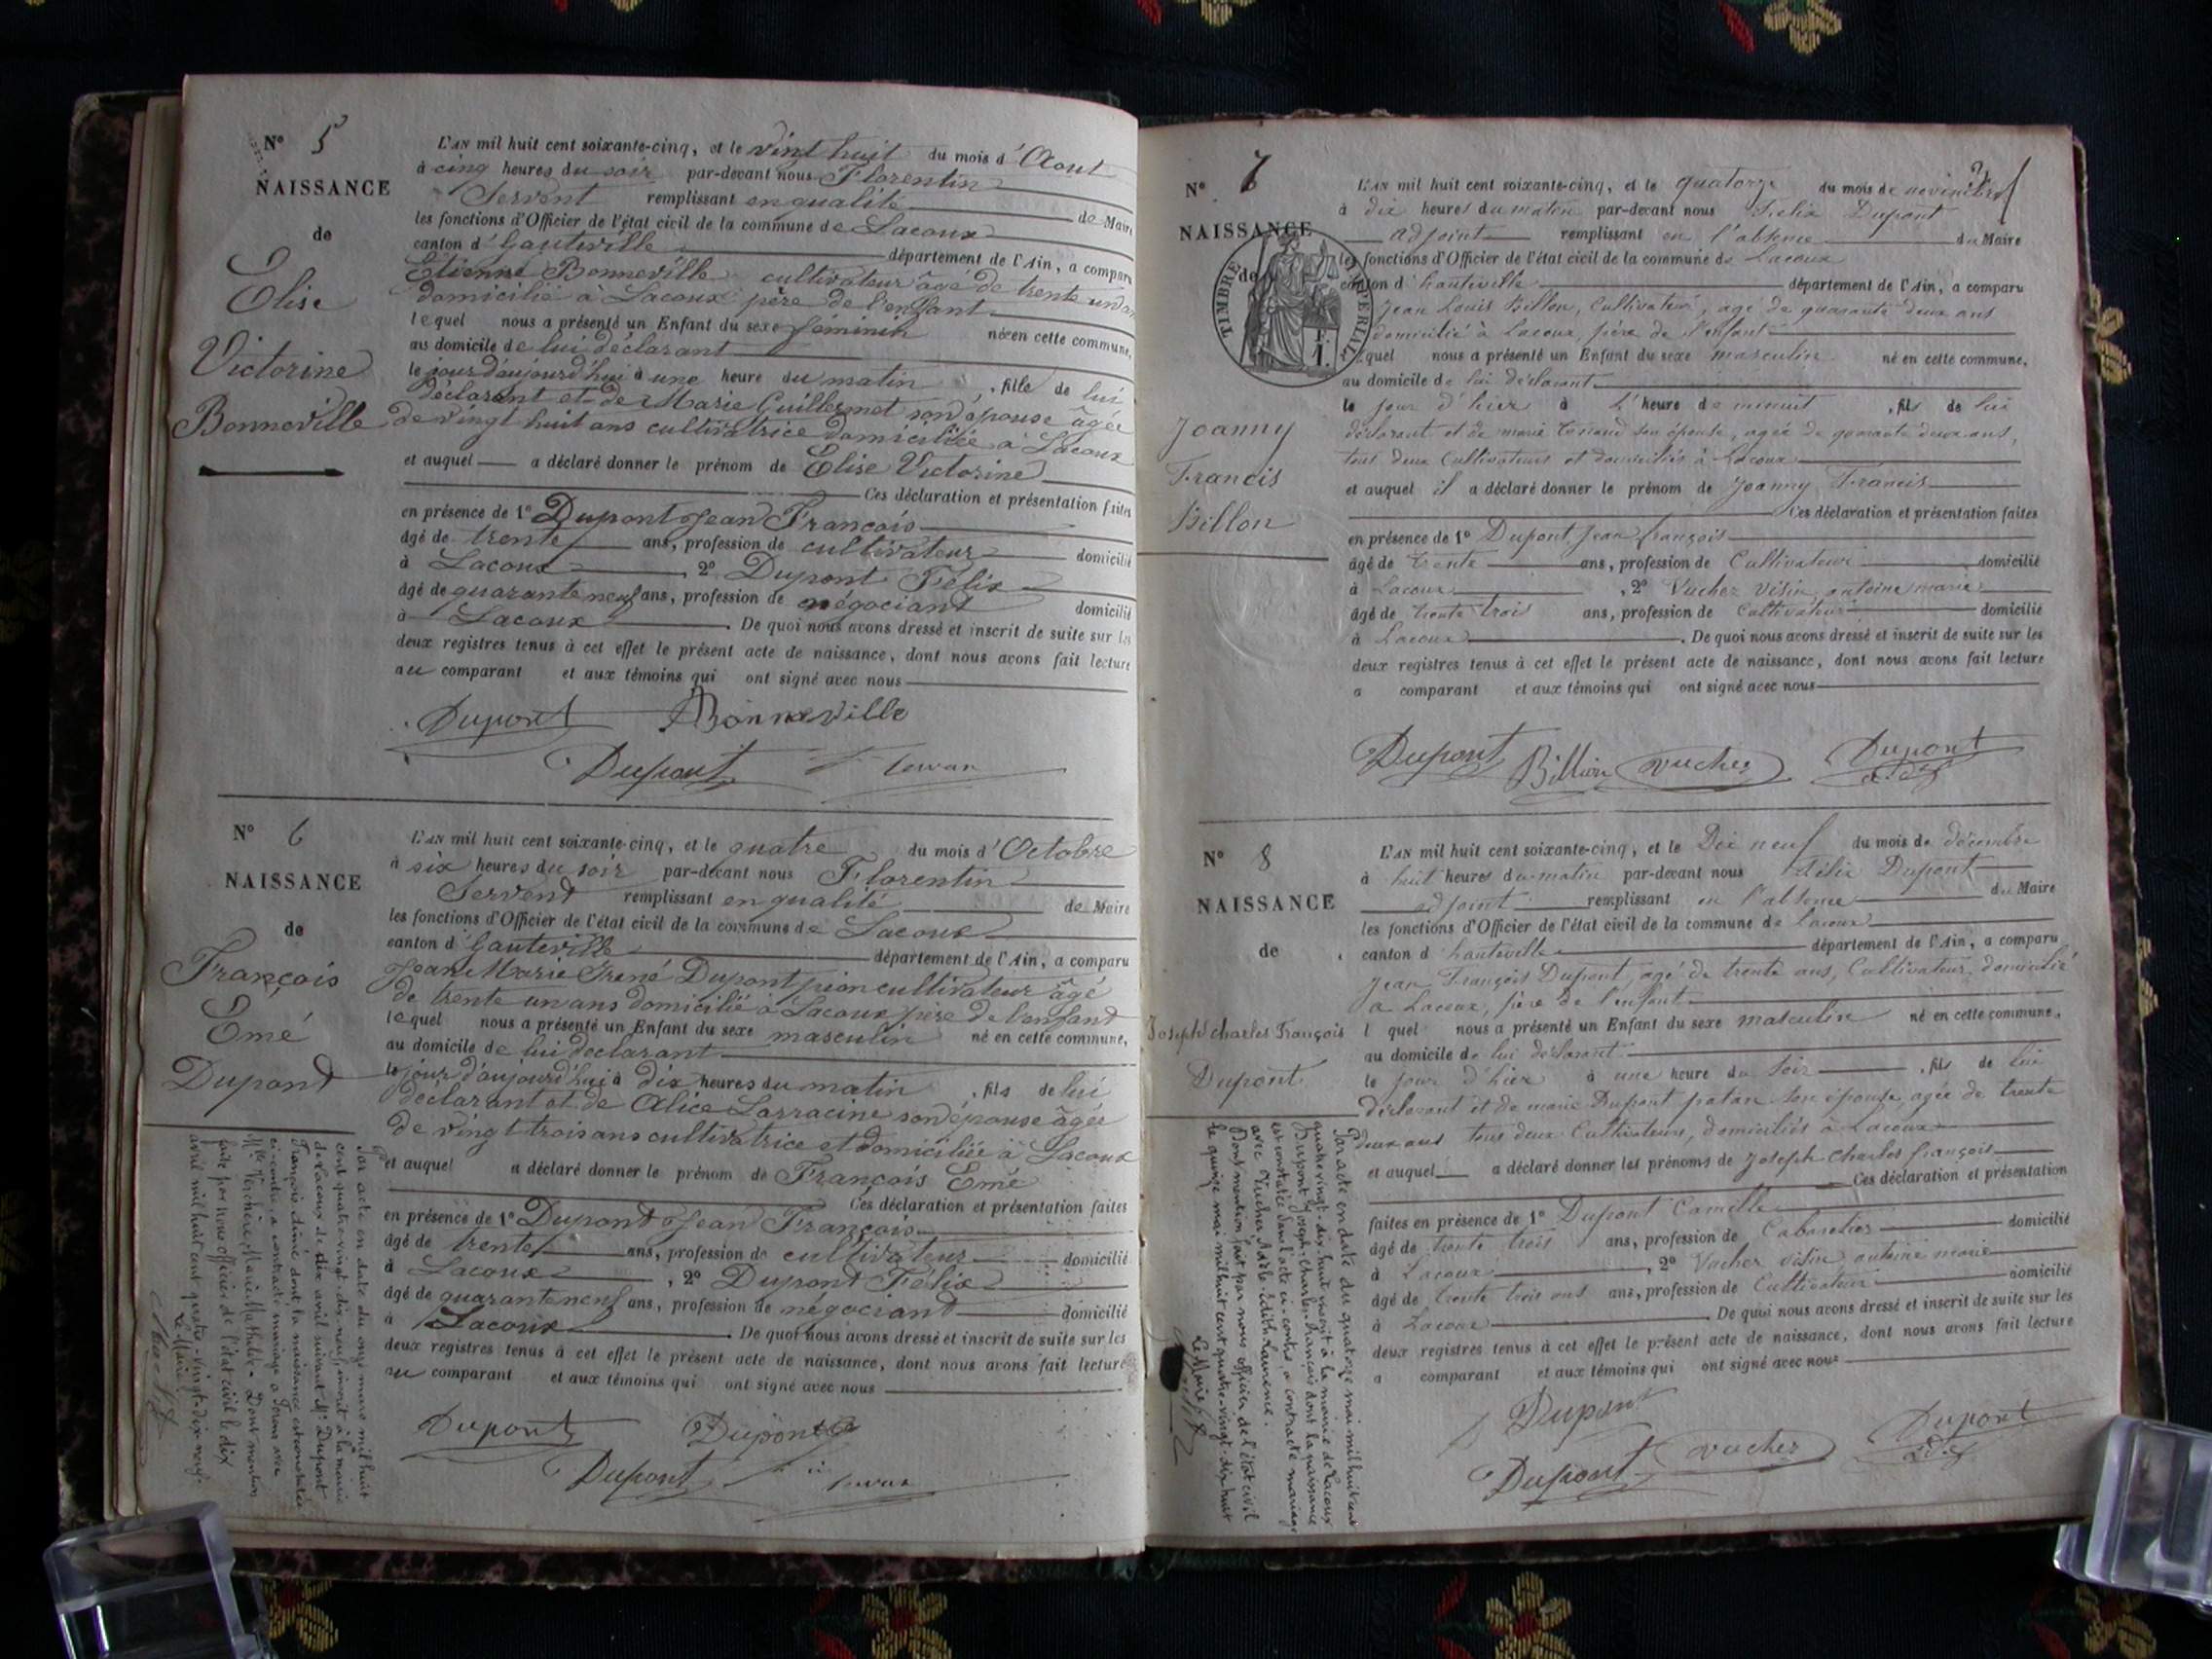 N° 5
NAISSANCE
de
Elise
Victorine
Bonneville
L'AN mil huit cent soixante-cinq, et le vint huit du mois d'Aout
à cinq heures du soir par-devant nous Florentin
Servent remplissant en qualité de Maire
les fonctions d'Officier de l'état civil de la commune de Lacoux
canton d'Hauteville département de l'Ain, a comparu
Etienne Bonneville cultivateur âgé de trente un ans
domicilié à Lacoux père de l'enfant
lequel nous a présenté un Enfant du sexe féminin né en cette commune,
au domicile de lui déclarant
le jour d'aujourd'hui à une heure du matin, fille de lui
déclarant et de Marie Guillermet son épouse âgée
de vingt huit ans cultivatrice domiciliée à Lacoux
et auquel a déclaré donner le prénom de Elise Victorine
Ces déclaration et présentation faites
en présence de 1° Dupont Jean François
âgé de trente ans, profession de cultivateur domicilié
à Lacoux, 2° Dupont Félix
âgé de quarante neuf ans, profession de négociant domicilié
à Lacoux. De quoi nous avons dressé et inscrit de suite sur les
deux registres tenus à cet effet le présent acte de naissance, dont nous avons fait lecture
au comparant et aux témoins qui ont signé avec nous
Dupont Bonneville
Dupont
N° 6
NAISSANCE
de
François
Emé
Dupont
L'AN mil huit cent soixante-cinq, et le quatre du mois d'Octobre
à six heures du soir par-devant nous Florentin
Servent remplissant en qualité de Maire
les fonctions d'Officier de l'état civil de la commune de Lacoux
canton d'Hauteville département de l'Ain, a comparu
Jean Marie René Dupont pion cultivateur âgé
de trente un ans domicilié à Lacoux père de l'enfant
lequel nous a présenté un Enfant du sexe masculin né en cette commune,
au domicile de lui déclarant
le jour d'aujourd'hui à dix heures du matin, fils de lui
déclarant et de Alice Larracine son épouse âgée
de vingt trois ans cultivatrice et domiciliée à Lacoux
et auquel a déclaré donner le prénom de François Emé
Ces déclaration et présentation faites
en présence de 1° Dupont Jean François
âgé de trente ans, profession de cultivateur domicilié
à Lacoux, 2° Dupont Félix
âgé de quarante neuf ans, profession de négociant domicilié
à Lacoux. De quoi nous avons dressé et inscrit de suite sur les
deux registres tenus à cet effet le présent acte de naissance, dont nous avons fait lecture
au comparant et aux témoins qui ont signé avec nous
Dupont Dupont
Dupont
Par acte en date du onze mars mil huit
cent quatre-vingt-dix-neuf, inscrit à la mairie
de Lacoux de dix avril suivant Mr Dupont
François Aimé dont la naissance est constatée
ci-contre, a contracté mariage à avec
Mlle Verchère Marie Mathilde - Dont mention
faite par nous officier de l'état civil le dix
avril mil huit cent quatre-vingt-dix-neuf.
Le Maire
N° 7
NAISSANCE
de
TIMBRE IMPERIAL
Joanny
Francis
Billon
L'AN mil huit cent soixante-cinq, et le quatorze du mois de novembre
à dix heures du matin par-devant nous Felix Dupont
adjoint remplissant en l'absence du Maire
les fonctions d'Officier de l'état civil de la commune de Lacoux
canton d'hauteville département de l'Ain, a comparu
Jean Louis Billon, Cultivateur, agé de quarante deux ans
domicilié à Lacoux, père de l'enfant
lequel nous a présenté un Enfant du sexe masculin né en cette commune,
au domicile de lui déclarant
le jour d'hier à l'heure de minuit, fils de lui
déclarant et de marie son épouse, agée de quarante deux ans,
tous deux Cultivateurs et domiciliés à Lacoux
et auquel il a déclaré donner le prénom de Joanny Francis
Ces déclaration et présentation faites
en présence de 1° Dupont Jean françois
âgé de trente ans, profession de Cultivateur domicilié
à Lacoux, 2° Vucher visin antoine marie
âgé de trente trois ans, profession de Cultivateur domicilié
à Lacoux. De quoi nous avons dressé et inscrit de suite sur les
deux registres tenus à cet effet le présent acte de naissance, dont nous avons fait lecture
a comparant et aux témoins qui ont signé avec nous
Dupont Billion vucher Dupont
N° 8
NAISSANCE
de
Joseph Charles François
Dupont
L'AN mil huit cent soixante-cinq, et le Dix neuf du mois de décembre
à huit heures du matin par-devant nous Félix Dupont
adjoint remplissant en l'absence du Maire
les fonctions d'Officier de l'état civil de la commune de Lacoux
canton d'hauteville département de l'Ain, a comparu
Jean François Dupont, agé de trente ans, Cultivateur, domicilié
a Lacoux, père de l'enfant
l quel nous a présenté un Enfant du sexe masculin né en cette commune,
au domicile de lui déclarant
le jour d'hier à une heure du soir, fils de lui
déclarant et de marie Dupont patan son épouse, agée de trente
deux ans tous deux Cultivateurs, domiciliés à Lacoux
et auquel a déclaré donner les prénoms de Joseph Charles françois
Ces déclaration et présentation
faites en présence de 1° Dupont Camille
âgé de trente trois ans, profession de Cabaretier domicilié
à Lacoux, 2° Vucher visin antoine marie
âgé de trente trois ans ans, profession de Cultivateur domicilié
à Lacoux. De quoi nous avons dressé et inscrit de suite sur les
deux registres tenus à cet effet le présent acte de naissance, dont nous avons fait lecture
a comparant et aux témoins qui ont signé avec nous
Dupont
Dupont vucher Dupont
Par acte en date du quatorze mai mil huit cent
quatre vingt-dix-huit inscrit à la mairie de Lacoux
Dupont Joseph-Charles-François dont la naissance
est constatée dans l'acte ci-contre a contracté mariage
avec Vucher Adèle Edith Laurence.
Dont mention fait par nous officier de l'état civil
le quinze mai mil huit cent quatre-vingt-dix-huit
Le Maire